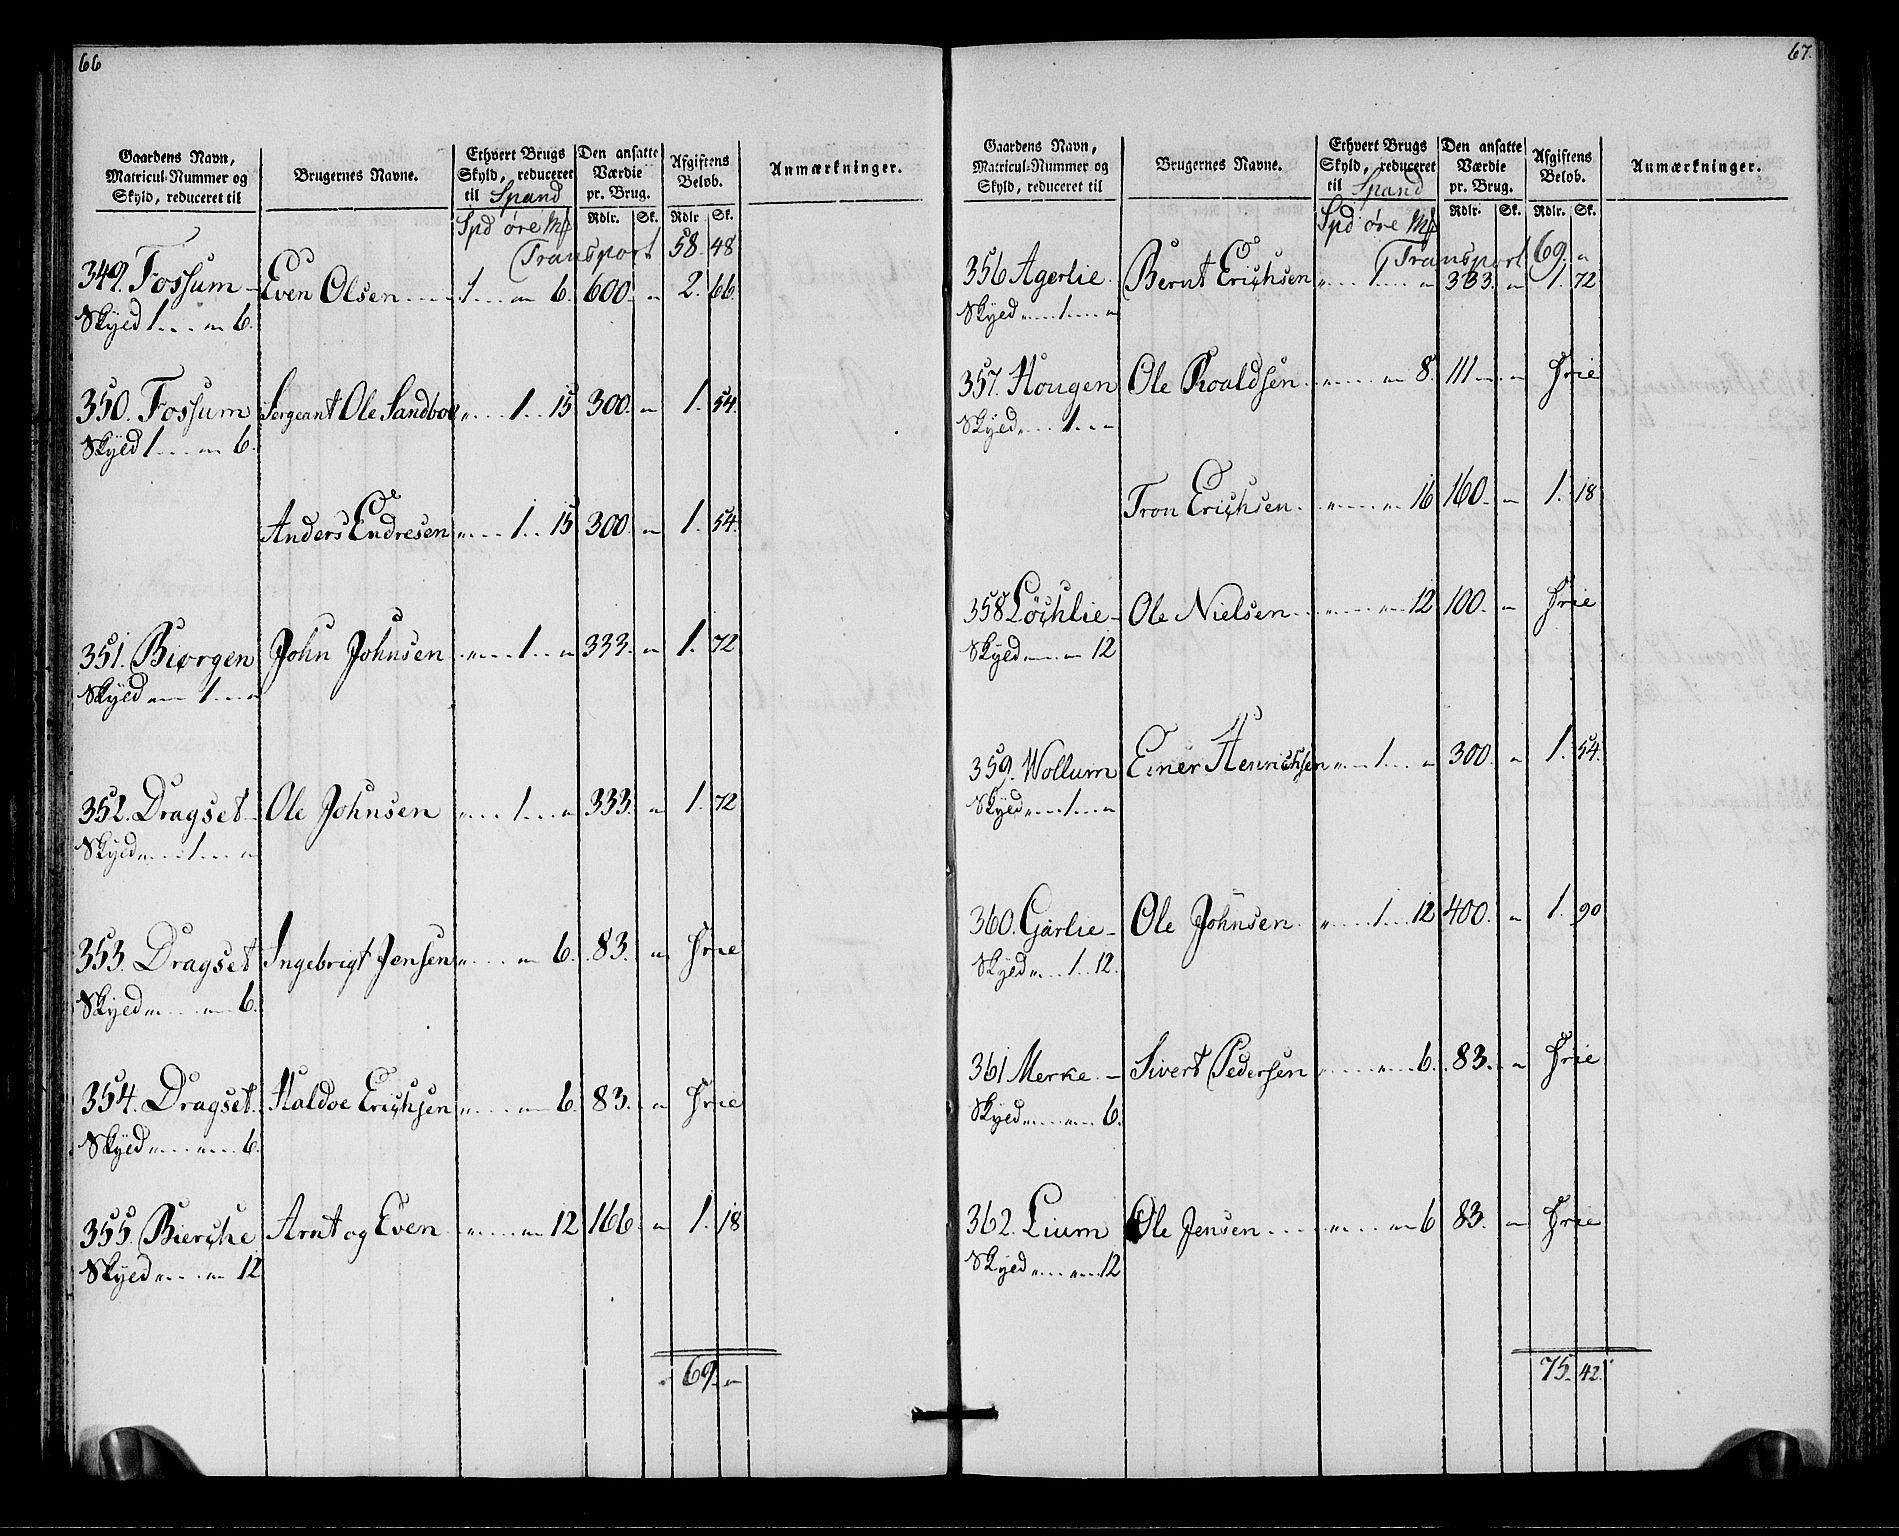 66
Gaardens Navn, Matricul-Nummer og Skyld, reduceret til | Brugernes Navne. | Ethvert Brugs Skyld, reduceret til Spand | Den ansatte Værdie pr. Brug. | Afgiftens Beløb. | Anmærkninger.
Rdlr. Sk. Rdlr. Sk.
Spd øre Mƒ
Transport 58. 48
349. Fossum Even Olsen 1 „ 6. 600. „ 2. 66.
Skyld 1 „ 6.
350. Fossum Sergeant Ole Sandboe „ 1. 15 300. „ 1. 54.
Skyld 1 „ 6.
Anders Endresen „ 1. 15 300. „ 1. 54.
351. Biørgen John Johnsen „ 1. „ 333. „ 1. 72
Skyld „ 1. „
352. Dragset Ole Johnsen „ 1. „ 333. „ 1. 72
Skyld „ 1. „
353. Dragset Ingebrigt Jensen „ „ 6. 83. „ Frie
Skyld „ „ 6.
354. Dragset Haldoe Erichsen „ „ 6. 83. „ Frie
Skyld „ „ 6.
355. Bierche Arnt og Even „ „ 12 166. „ 1. 18
Skyld „ „ 12
69. „
67.
Gaardens Navn, Matricul-Nummer og Skyld, reduceret til | Brugernes Navne. | Ethvert Brugs Skyld, reduceret til Spand | Den ansatte Værdie pr. Brug. | Afgiftens Beløb. | Anmærkninger.
Rdlr. Sk. Rdlr. Sk.
Spd øre Mƒ
Transport 69. „
356 Agerlie Bernt Erichsen „ 1. „ 333. „ 1. 72
Skyld „ 1. „
357. Hougen Ole Roaldsen „ „ 8. 111 „ Frie
Skyld „ 1. „
Tron Erichsen „ „ 16 160. „ 1. 18
358 Løchlie Ole Nielsen „ „ 12 100. „ Frie
Skyld „ „ 12
359. Wollum Einer Henrichsen „ 1. „ 300. „ 1. 54.
Skyld „ 1. „
360. Garlie Ole Johnsen „ 1. 12 400. „ 1. 90
Skyld „ 1. 12.
361 Merke Sivert Pedersen „ „ 6. 83. „ Frie
Skyld „ „ 6.
362. Lium Ole Jensen „ „ 6 83. „ Frie
Skyld „ „ 12
75. 42.